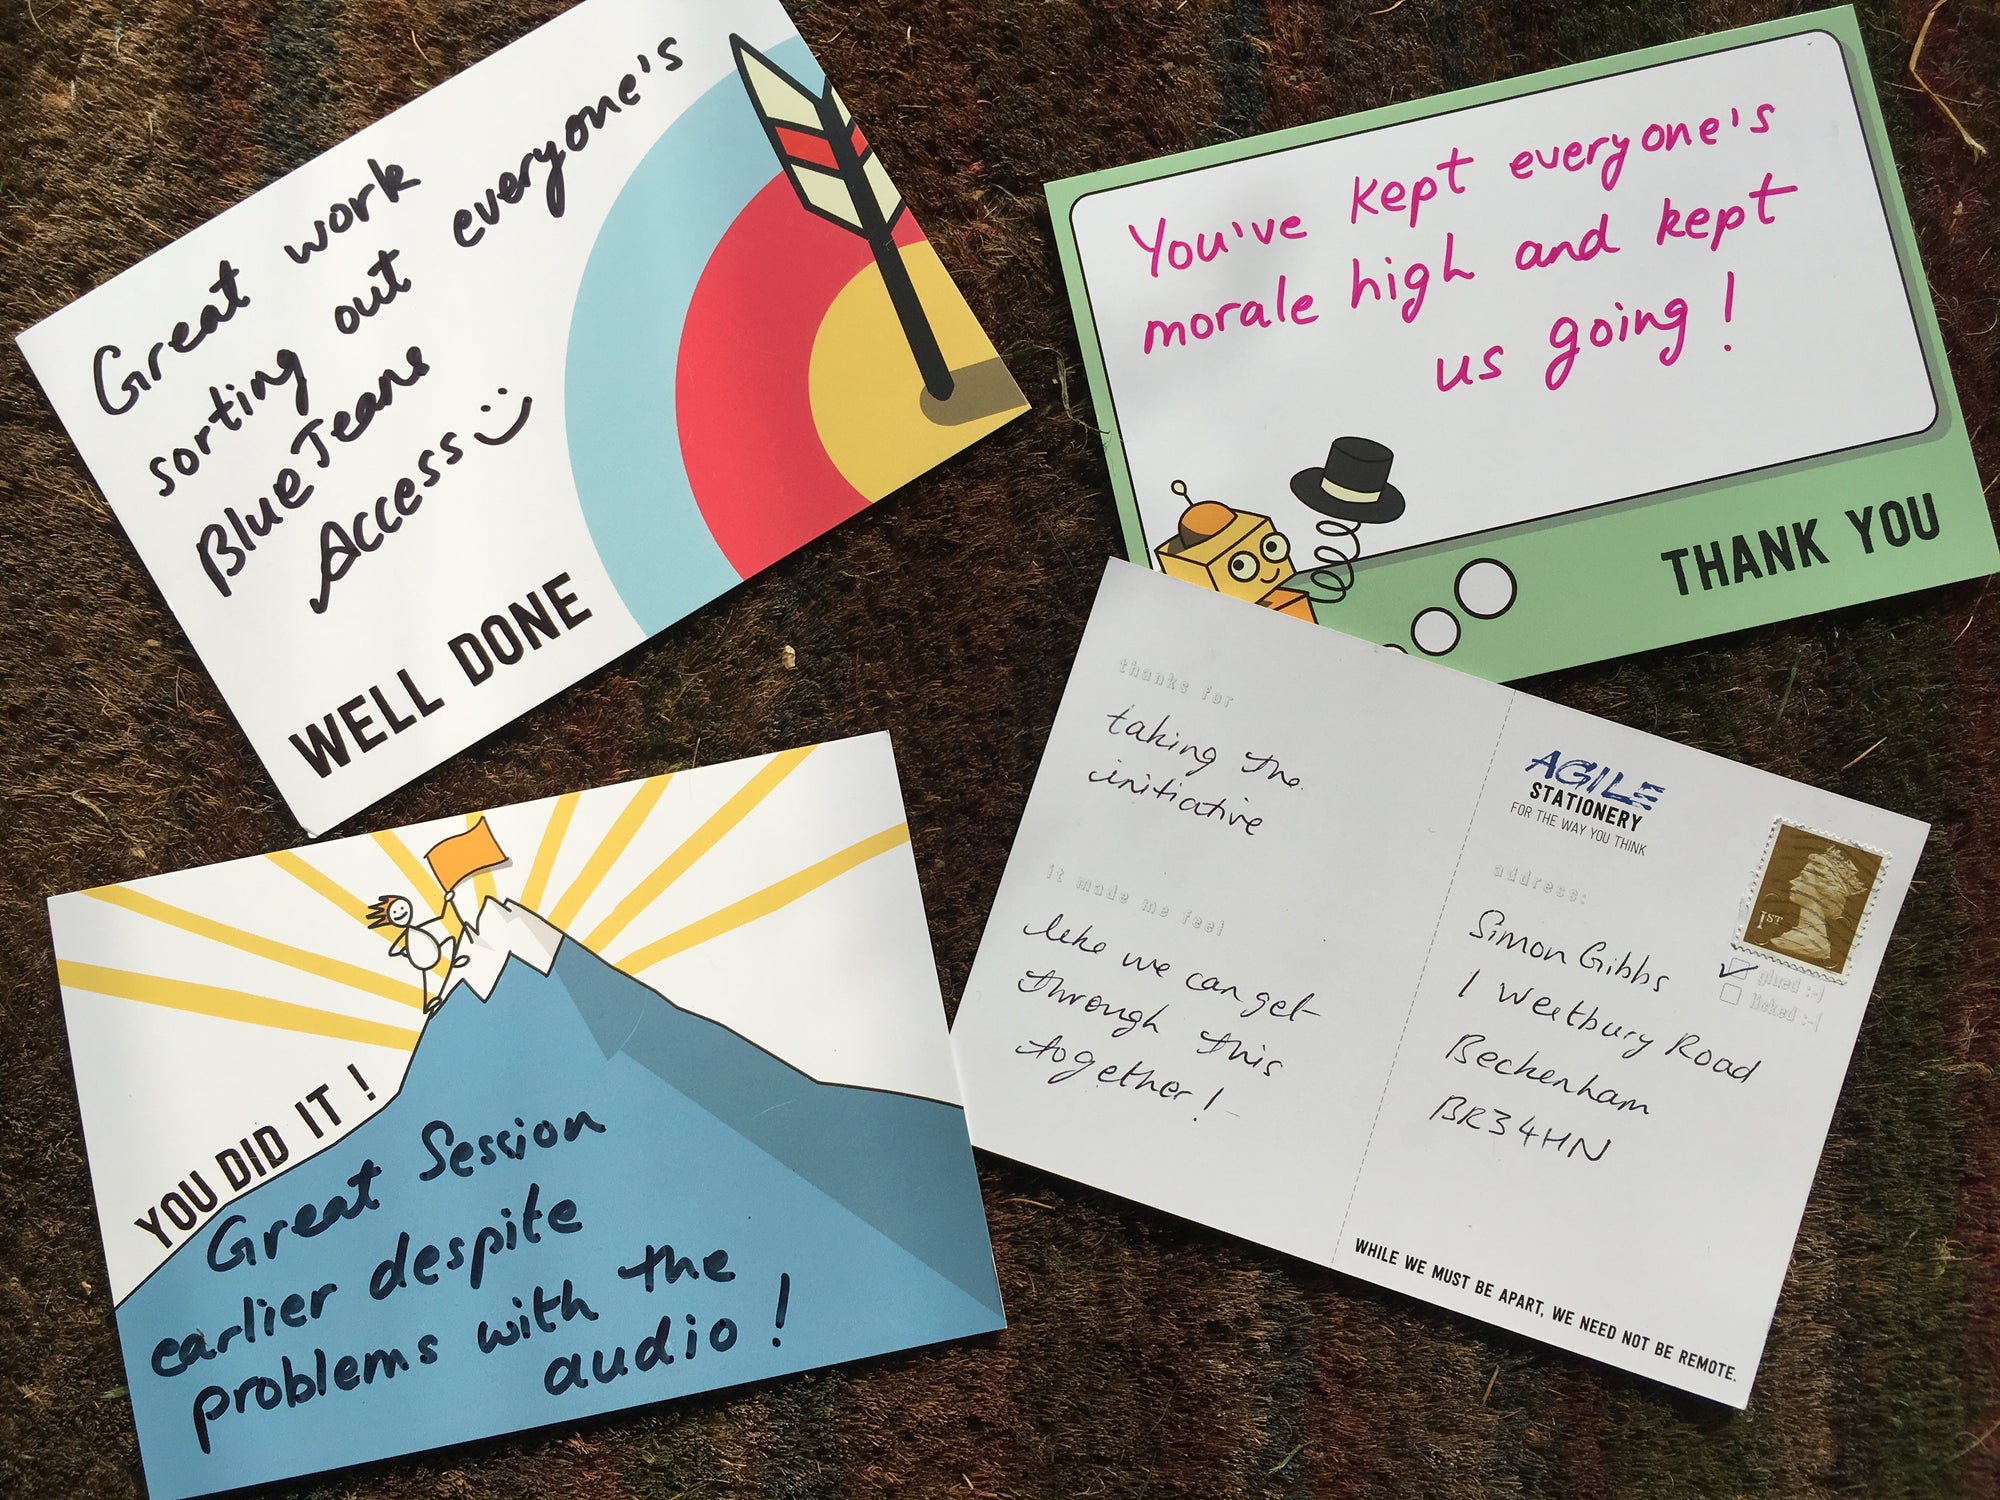 Great work
sorting out everyone's
BlueJeans
Access
WELL DONE
You've kept everyone's
morale high and kept
us going!
THANK YOU
YOU DID IT!
Great Session
earlier despite
problems with the
audio!
thanks for
taking the
initiative
it made me feel
like we can get
through this
together!
AGILE
STATIONERY
FOR THE WAY YOU THINK
1ST
address:
Simon Gibbs
1 Westbury Road
Beckenham
BR3 4HN
glued :-)
licked :-(
WHILE WE MUST BE APART, WE NEED NOT BE REMOTE.